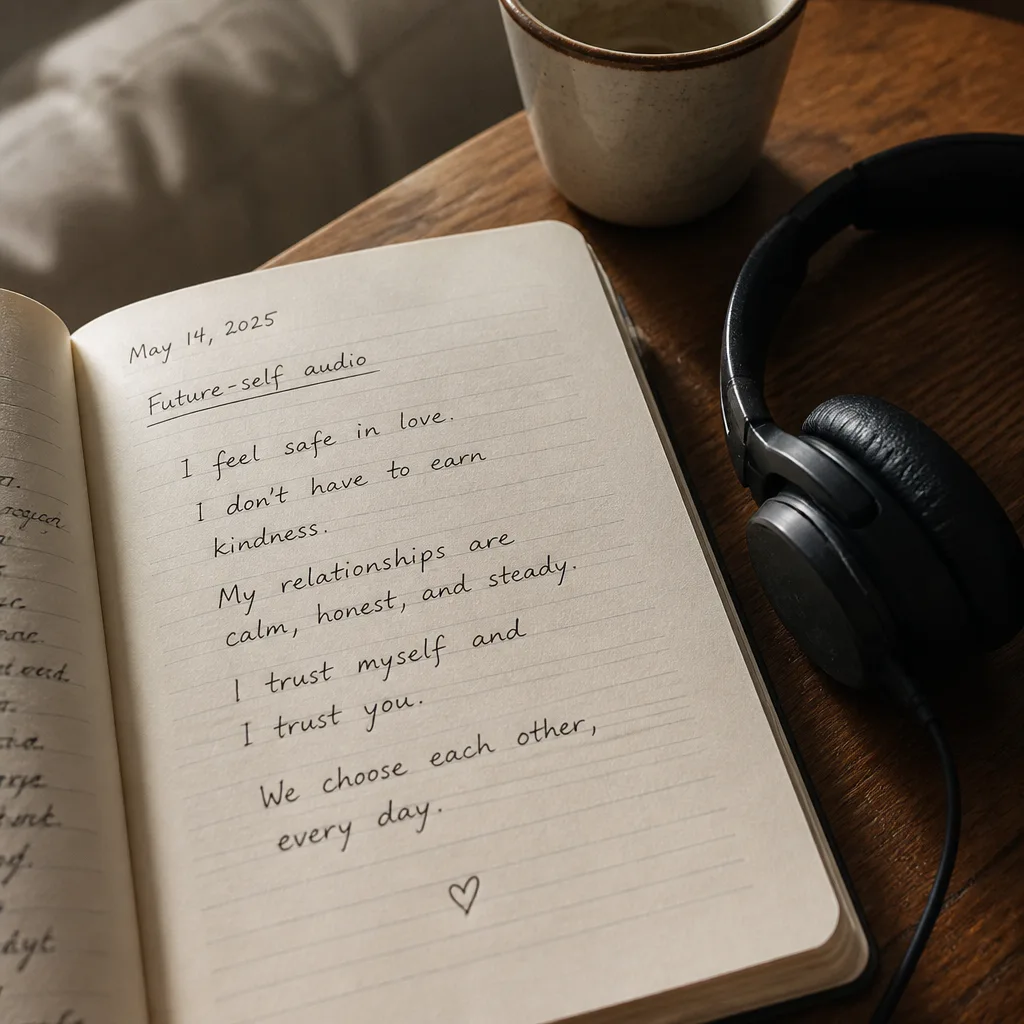 May 14, 2025
Future-self audio
I feel safe in love.
I don't have to earn
kindness.
My relationships are
calm, honest, and steady.
I trust myself and
I trust you.
We choose each other,
every day.